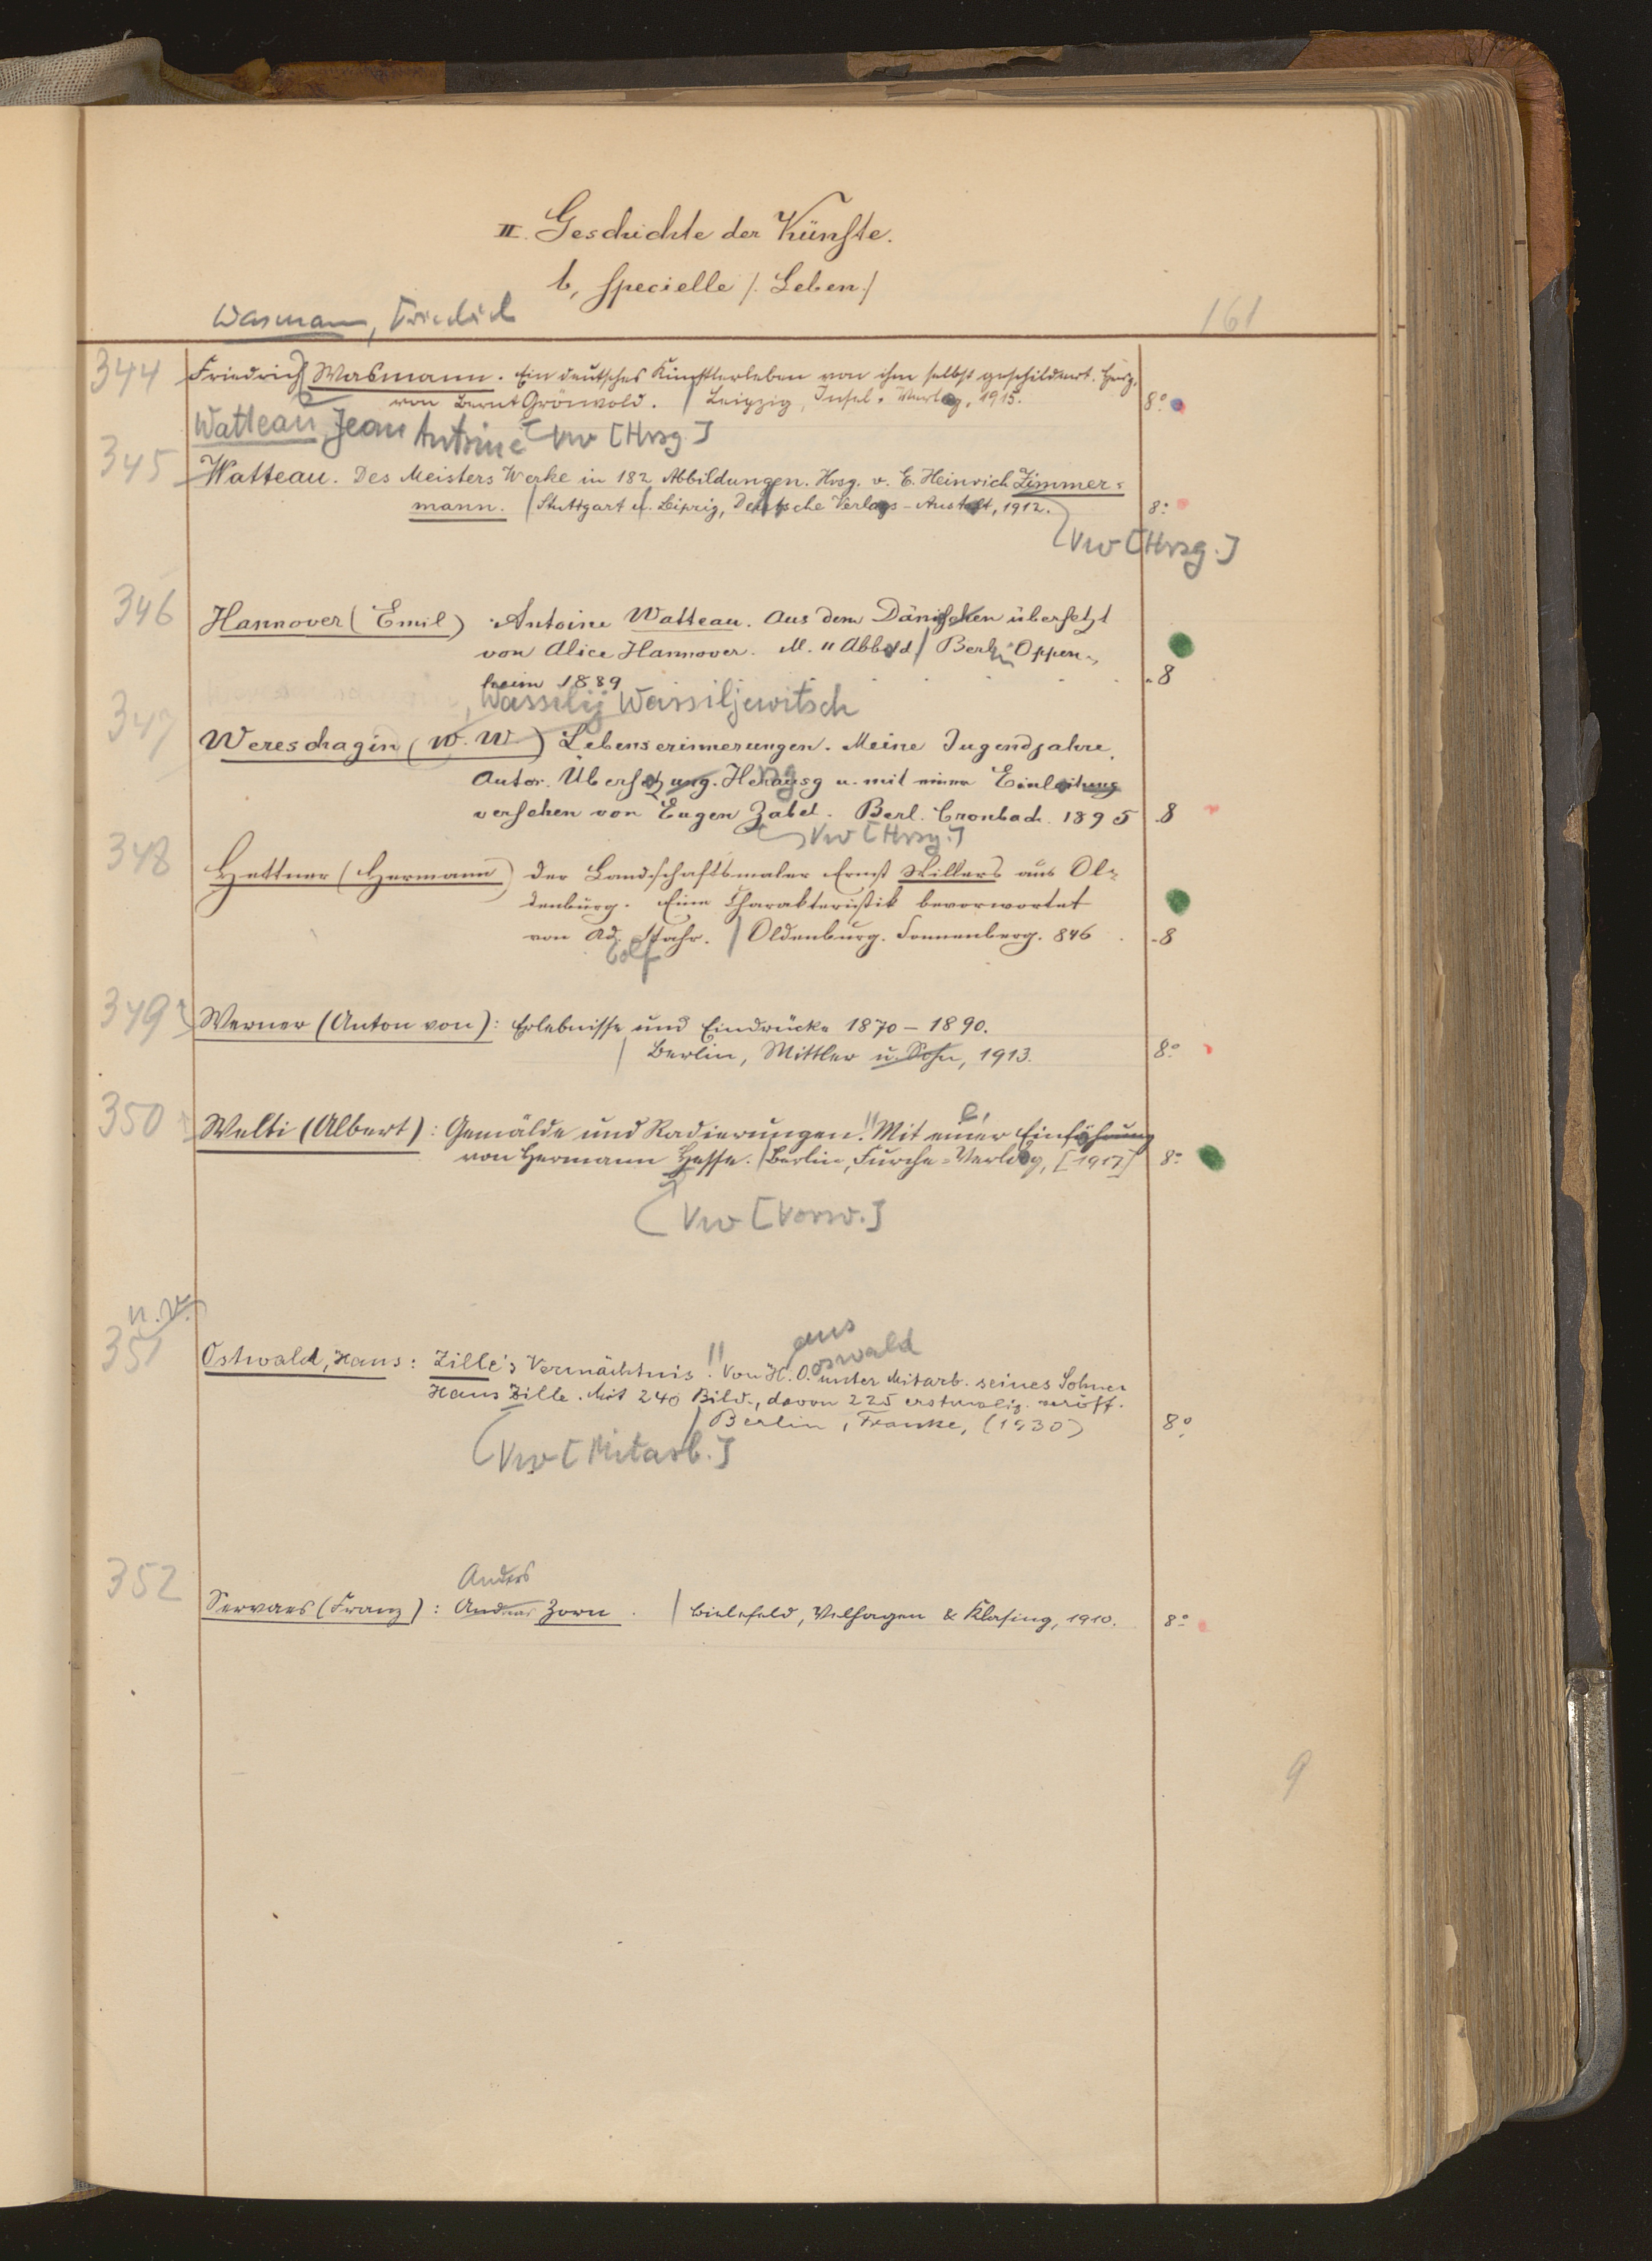 II. Geschichte der Künste.
b, specielle /. Leben./
Wasmann, Friedrich
161
344 Friedrich Wasmann. Ein deutsches Künstlerleben von ihm selbst geschildert. Hrsg.
von Bernt Grönvold. / Leipzig, Insel-Verlag, 1915. 8°
Watteau, Jean Antoine Vw [Hrsg.]
345 Watteau. Des Meisters Werke in 182 Abbildungen. Hrsg. v. E. Heinrich Zimmer-
mann. / Stuttgart u. Leipzig, Deutsche Verlags-Anstalt, 1912. 8°
Vw [Hrsg.]
346 Hannover (Emil) Antoine Watteau. Aus dem Dänischen übersetzt
von Alice Hannover. M. 11 Abbild / Berlin Oppen-
heim 1889 8
, Wassilij Wassiljewitsch
347 Wereschagin (W. W.) Lebenserinnerungen. Meine Jugendjahre.
Autor. Übersetzung. Herausg u. mit einer Einleitung
versehen von Eugen Zabel. Berl. Cronbach. 1895 8
Vw [Hrsg.]
348 Hettner (Hermann) Der Landschaftsmaler Ernst Willers aus Ol-
denburg. Eine Charakteristik bevorwortet
von Ad. Stahr. / Oldenburg. Sonnenberg. 846 8
olf
349 Werner (Anton von): Erlebnisse und Eindrücke 1870 – 1890.
Berlin, Mittler u. Sohn, 1913. 8°
350 Welti (Albert): Gemälde und Radierungen. Mit einer Einführung
von Hermann Hesse. / Berlin, Furche-Verlag, [1917] 8°
Vw [Vorw.]
n. V.
aus
351 Ostwald, Hans: Zille's Vermächtnis. Von H. O. unter Mitarb. seines Sohnes
oswald
Hans Zille. Mit 240 Bild., davon 225 erstmalig veröff.
/ Berlin, Franke, (1930) 8°
Vw [Mitarb.]
Anders
352 Servaes (Franz): Andreas Zorn. / Bielefeld, Velhagen & Klasing, 1910. 8°
9